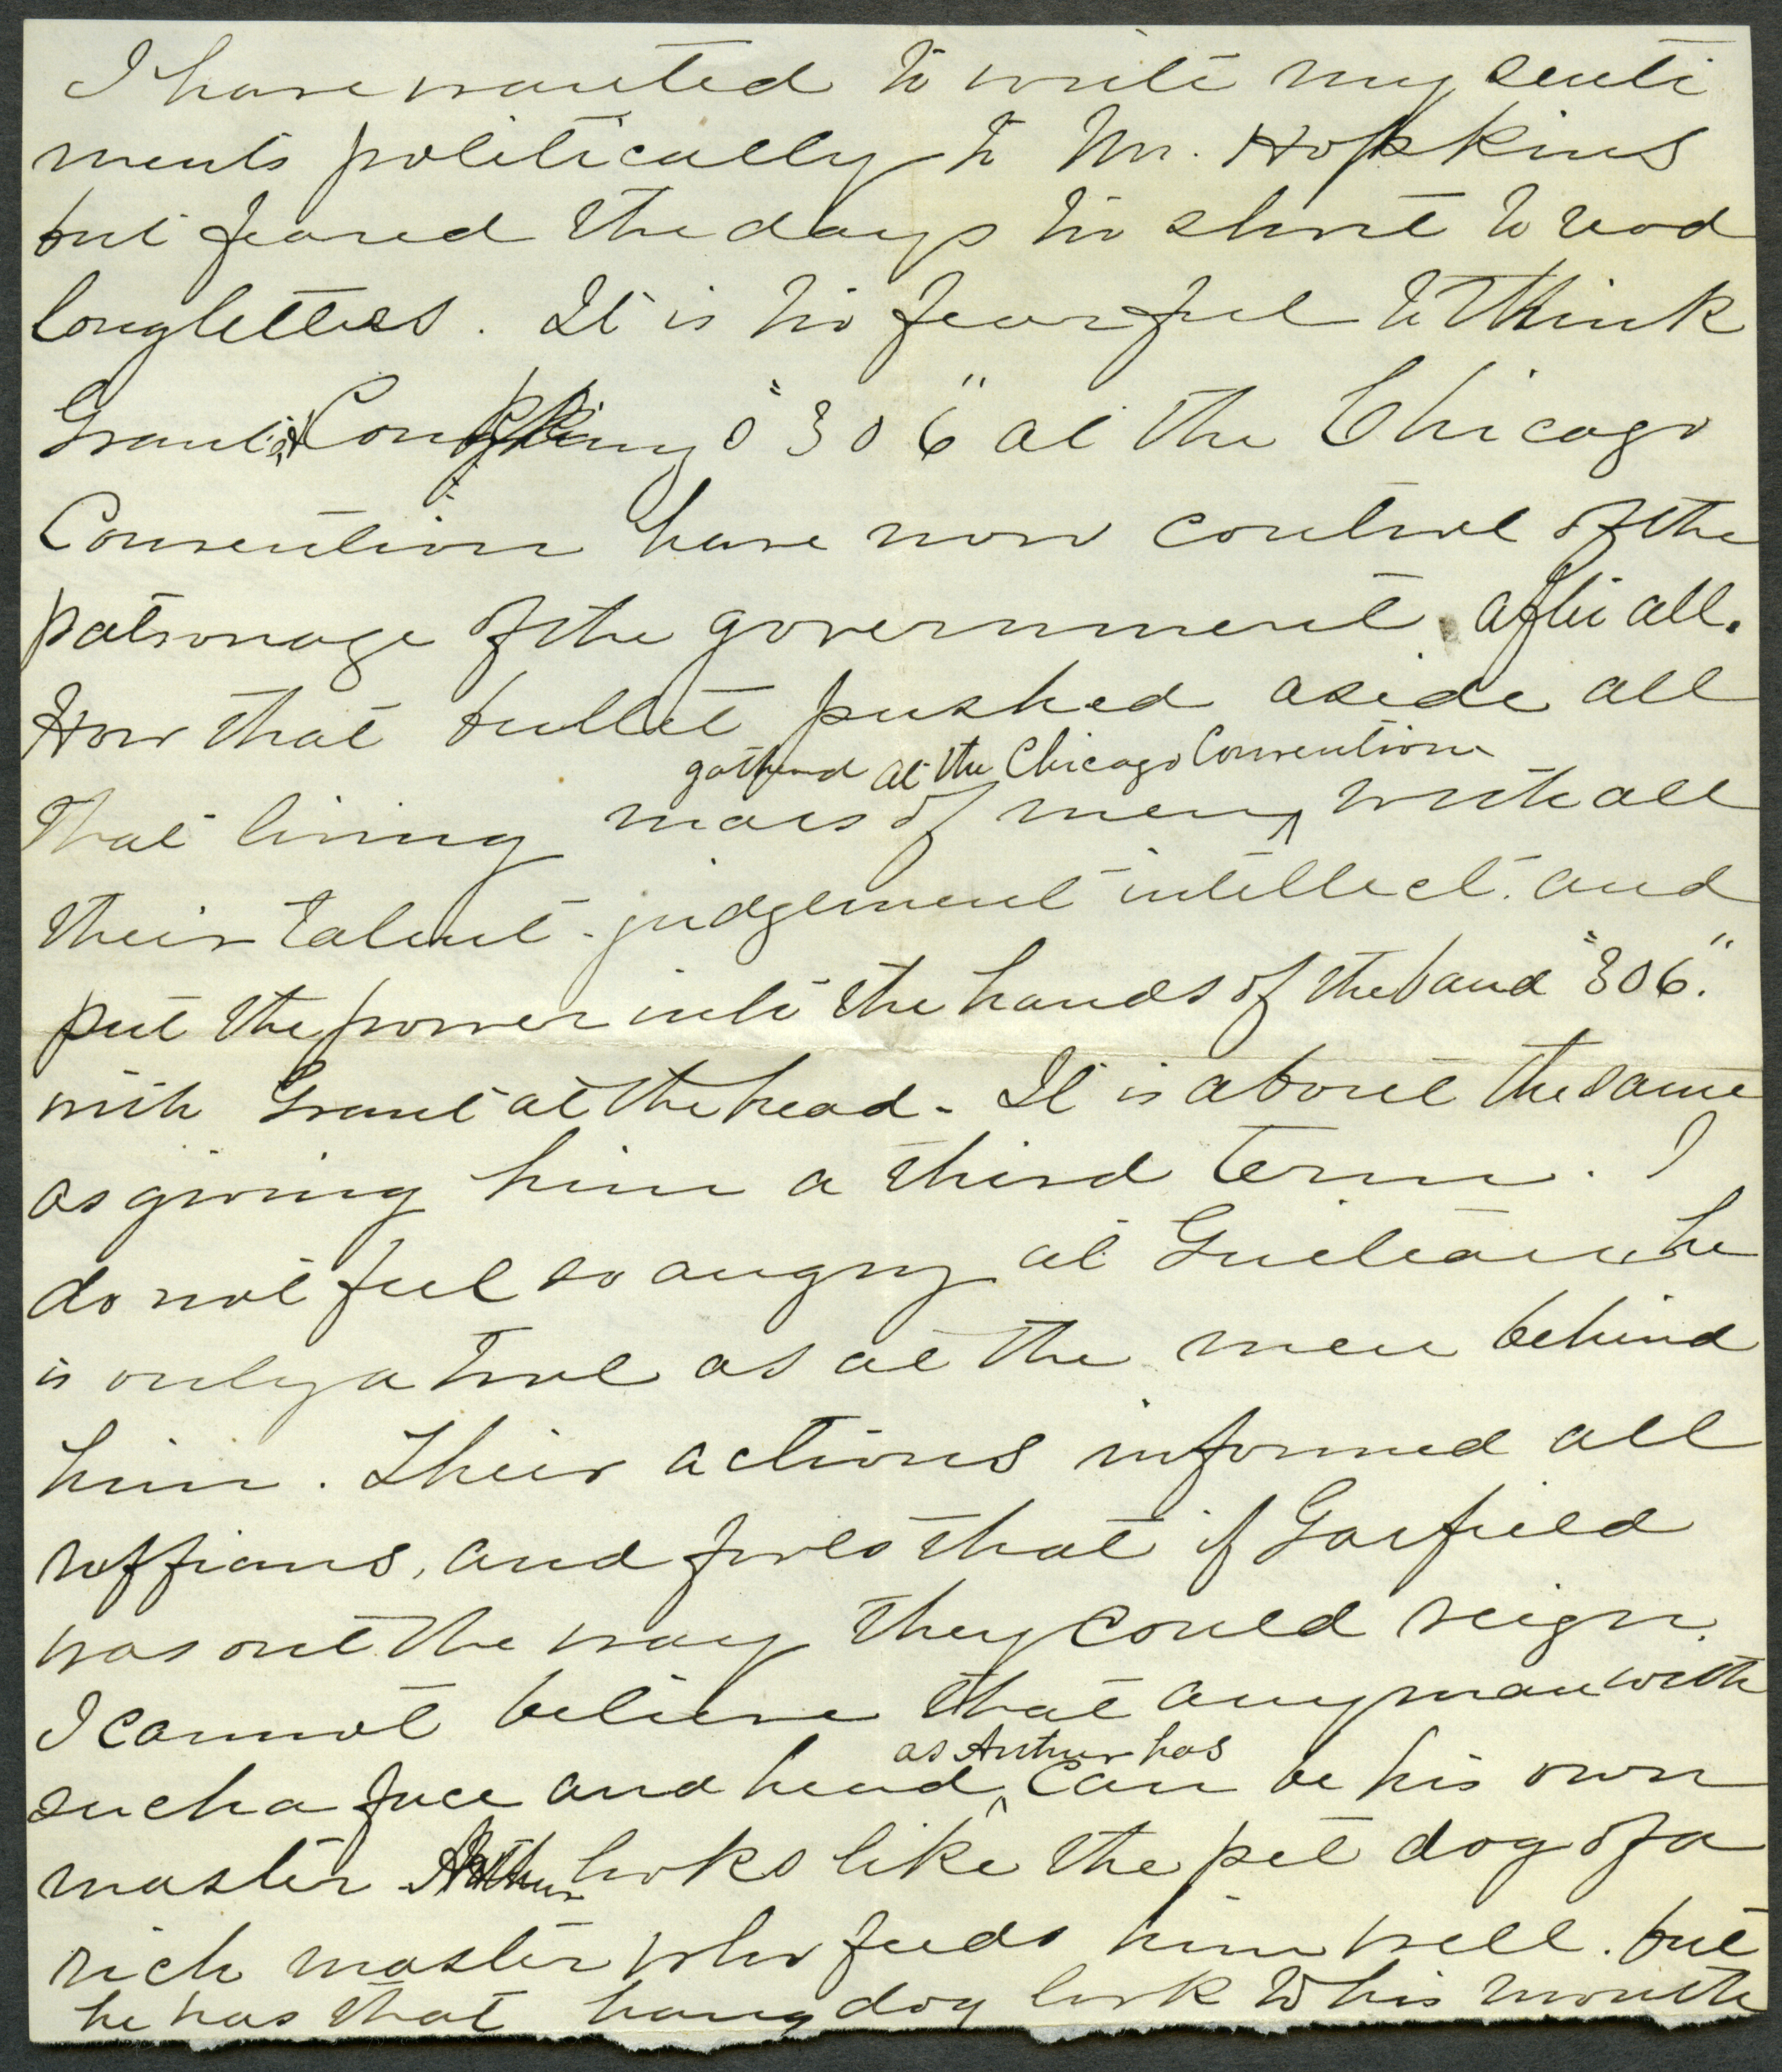 I have wanted to write my senti
ments politically to Mr. Hopkins
but feared the days too short to read
long letters. It is too fearful to think
Grant & Conkling's "306" at the Chicago
Convention have now control of the
patronage of the government after all.
How that bullet pushed aside all
gathered at the Chicago Convention
that living mass of men, with all
their talent - judgement intellect. and
put the power into the hands of the band "306".
with Grant at the head - It is about the same
as giving him a third term. I
do not feel so angry at Guiteau he
is only a tool as at the men behind
him. Their actions informed all
ruffians, and fools that if Garfield
was out the way they could reign.
I cannot believe that any man with
as Arthur has
such a face and head, can be his own
master Arthur looks like the pet dog of a
rich master who feeds him well. but
he has that hang dog look to his mouth